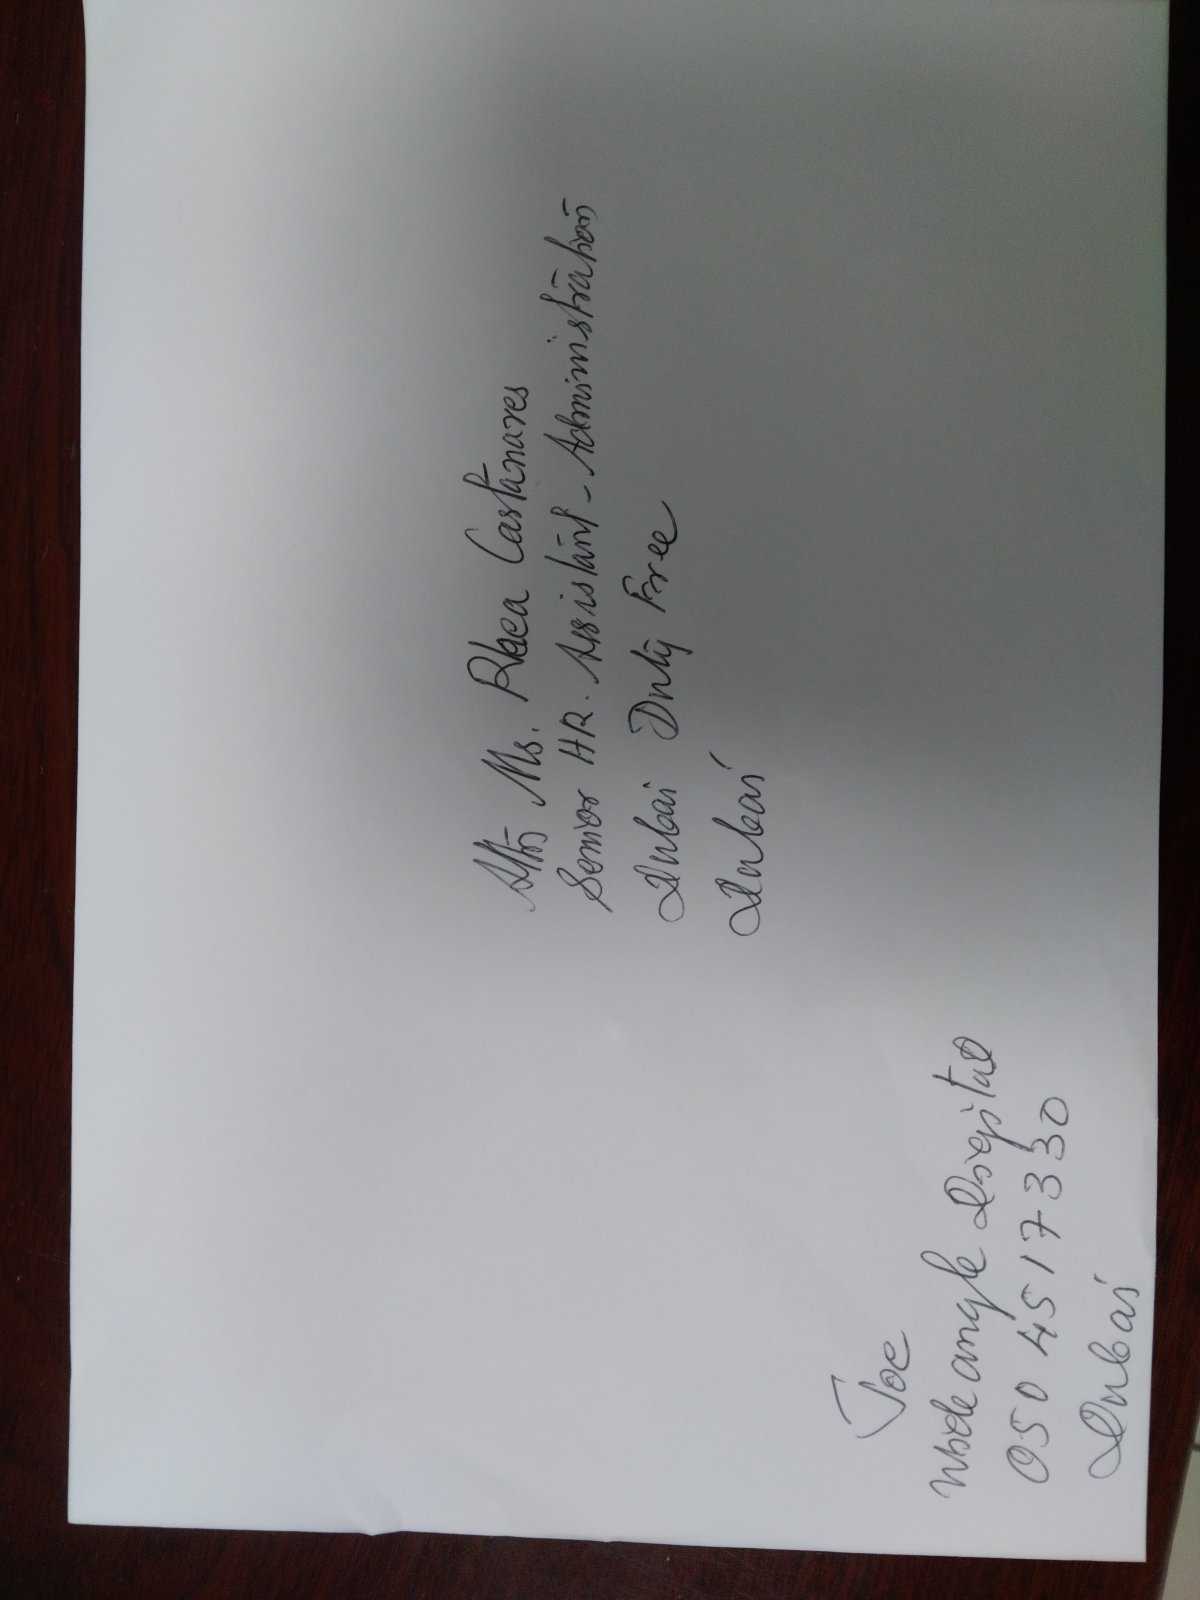 Attn Ms. Rhea Castanares
Senior HR. Assistant - Administration
Dubai Duty Free
Dubai
Joe
Wide angle Digital
050 4517330
Dubai